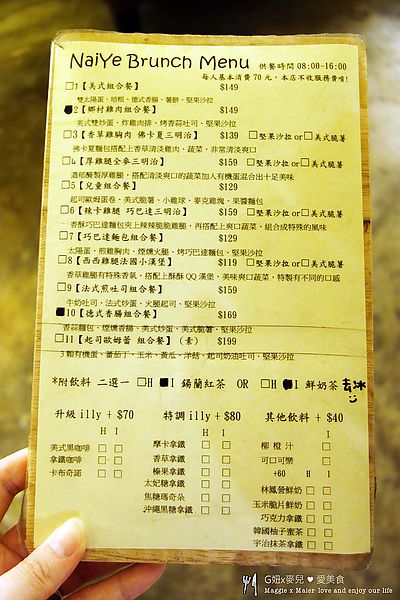 NaiYe Brunch Menu 供餐時間 08:00~16:00
每人基本消費 70 元，本店不收服務費唷!
□1【美式組合餐】 $149
雙太陽蛋、培根、德式香腸、薯餅、堅果沙拉
■2【鄉村雞肉組合餐】 $149
美式雙炒蛋、炸雞肉排、烤香蒜吐司、堅果沙拉
□3【香草雞胸肉 佛卡夏三明治】 $139 □堅果沙拉or□美式脆薯
佛卡夏麵包搭配上香草清淡雞肉、蔬菜，非常清淡爽口
□4【厚雞腿全麥三明治】 $159 □堅果沙拉or□美式脆薯
濃郁醃製厚雞腿，搭配清淡爽口的蔬菜加入有機蛋混合出十足美味
□5【兒童組合餐】 $129
起司歐姆蛋卷、美式脆薯、小雞球、麥克雞塊、果醬麵包
□6【辣卡雞腿 巧巴達三明治】 $159 □堅果沙拉or□美式脆薯
香酥巧巴達麵包夾上辣辣脆脆雞腿，再搭配上爽口蔬菜，組合成特殊的風味
□7【巧巴達麵包組合餐】 $129
太陽蛋、煎雞胸肉、煙燻火腿、烤巧巴達三明治、堅果沙拉
□8【西西雞腿法國小漢堡】 $119 □堅果沙拉or□美式脆薯
香草雞腿有特殊香氣，搭配上酥酥 QQ 漢堡，美味爽口蔬菜，特製有不同的口感
□9【法式煎吐司組合餐】 $159
牛奶吐司、法式炒蛋、火腿起司、堅果沙拉
■10【德式香腸組合餐】 $169
香蒜麵包、煙燻香腸、美式炒蛋、美式脆薯、堅果沙拉
□11【起司歐姆蕾 組合餐】(素) $199
3 顆有機蛋、蕃茄丁、玉米、黃瓜、洋菇、起司奶油吐司、堅果沙拉
*附飲料 二選一 □H ■I 錫蘭紅茶 OR □H ■I 鮮奶茶 去冰
升級 illy + $70 特調 illy + $80 其他飲料 + $40
H I H I I
美式黑咖啡 □ □ 摩卡拿鐵 □ □ 柳 橙 汁 □
拿鐵咖啡 □ □ 香草拿鐵 □ □ 可口可樂 □
卡布奇諾 □ □ 榛果拿鐵 □ □ +60 H I
太妃糖拿鐵 □ □ 林鳳營鮮奶 □ □
焦糖瑪奇朵 □ □ 玉米脆片鮮奶 □ □
沖繩黑糖拿鐵 □ □ 巧克力拿鐵 □ □
韓國柚子蜜茶 □ □
宇治抹茶拿鐵 □ □
G妞x麥兒 ♥ 愛美食
Maggie x Maier love and enjoy our life